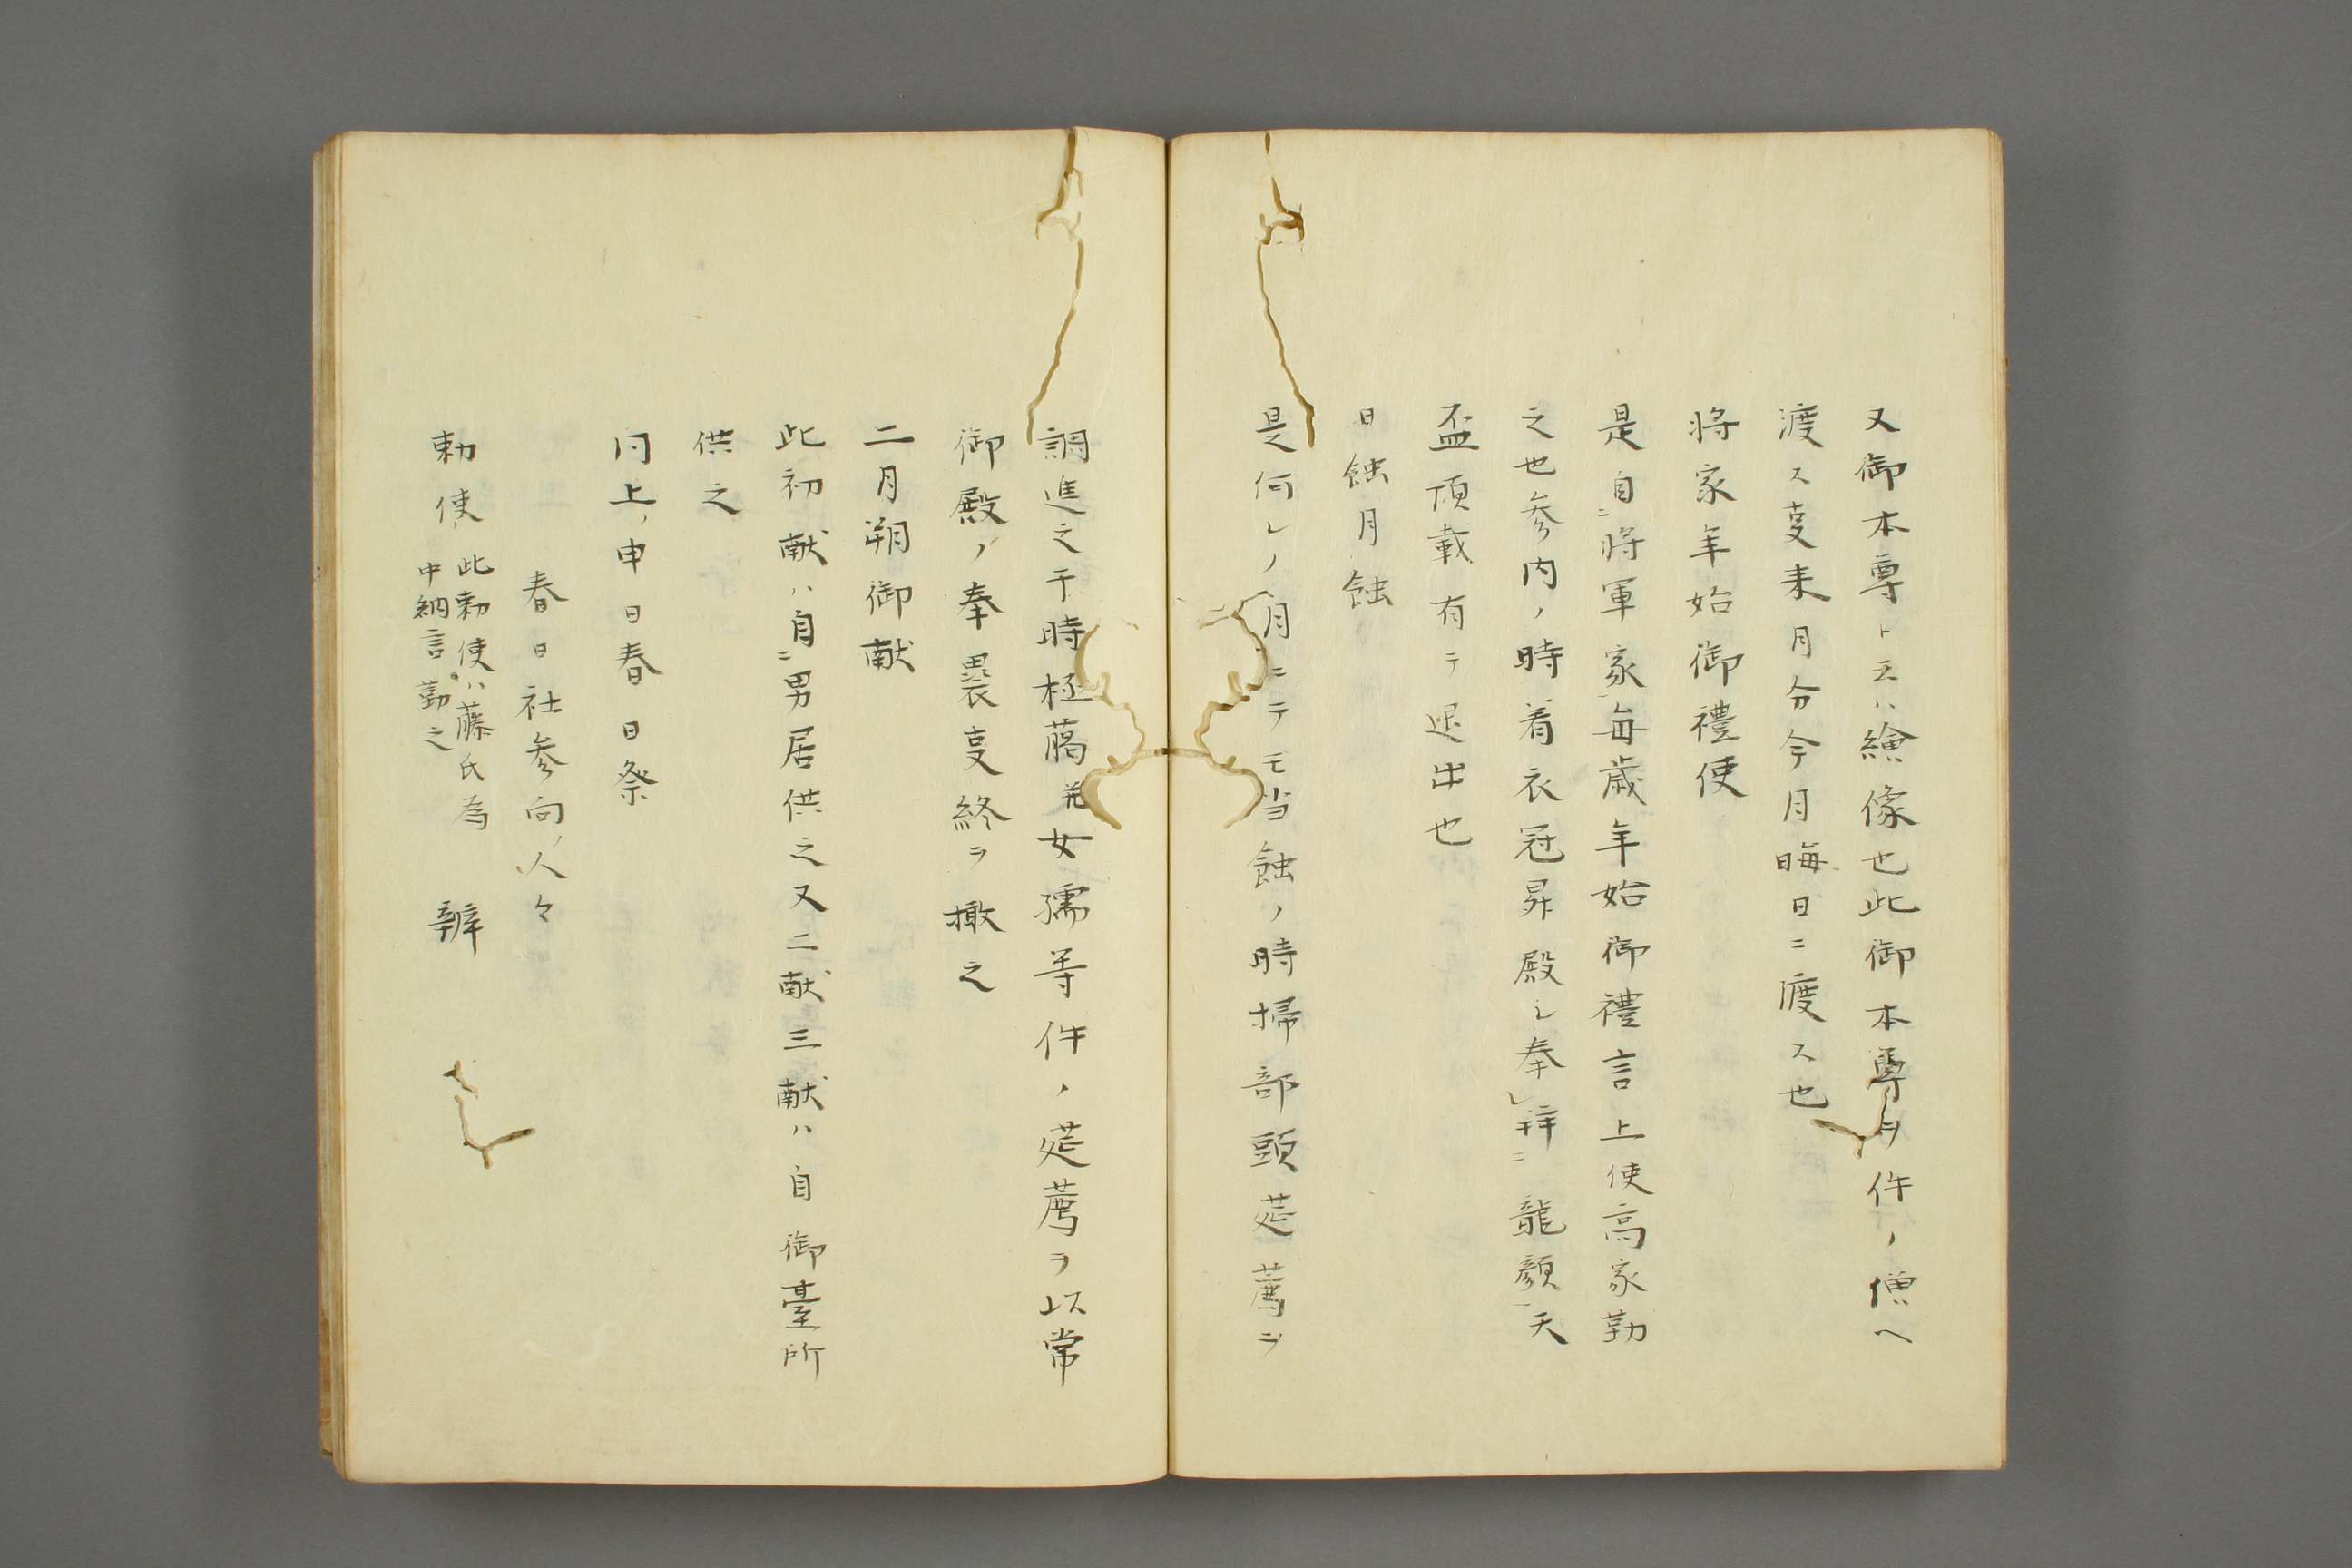 又御本尊ト云ハ繪像也此御本尊ヲ件ノ僧ヘ
渡ス叓来月分今月晦日ニ渡ス也
将家年始御禮使
是自ニ将軍家毎歳年始御禮言上使高家勤
之也参内ノ時着衣冠昇殿シ奉レ拜ニ龍顔一天
盃頂載有テ退出也
日蝕月蝕
是何レノ月ニテモ当蝕ノ時掃部頭莚薦ヲ
調進之于時極﨟并女孺等件ノ莚薦ヲ以常
御殿ノ奉褁叓終テ撤之
二月朔御献
此初献ハ自ニ男居供之又二献三献ハ自御臺所
供之
同上ノ申日春日祭
春日社参向ノ人々
勅使
此勅使ハ藤氏為
中納言勤之
辨